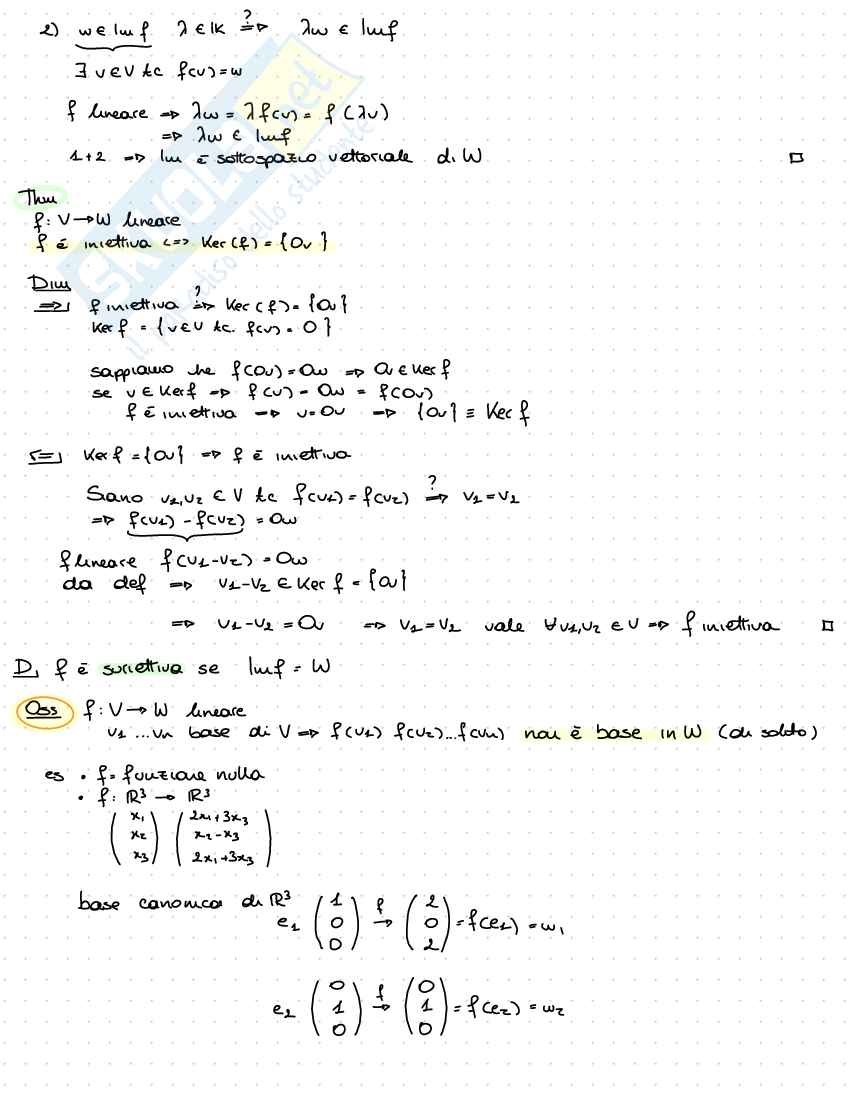 2) w ∈ Im f   λ ∈ K  ?⇒  λw ∈ Im f
∃ v ∈ V tc f(v) = w
f lineare ⇒ λw = λf(v) = f(λv)
⇒ λw ∈ Im f
1+2 ⇒ Im è sottospazio vettoriale di W □
Thm
f: V → W lineare
f è iniettiva <=> Ker(f) = {0v}
Dim
⇒| f iniettiva ?⇒ Ker(f) = {0v}
Ker f = {v ∈ V tc. f(v) = 0}
sappiamo che f(0v) = 0w ⇒ 0v ∈ Ker f
se v ∈ Ker f ⇒ f(v) = 0w = f(0v)
f è iniettiva ⇒ v = 0v ⇒ {0v} ≡ Ker f
<=| Ker f = {0v} ⇒ f è iniettiva
Siano v1,v2 ∈ V tc f(v1) = f(v2) ?⇒ v1 = v2
⇒ f(v1) - f(v2) = 0w
f lineare f(v1-v2) = 0w
da def ⇒ v1-v2 ∈ Ker f = {0v}
⇒ v1-v2 = 0v ⇒ v1 = v2 vale ∀v1,v2 ∈ V ⇒ f iniettiva □
D| f è suriettiva se Im f = W
Oss f: V → W lineare
v1 ... vn base di V ⇒ f(v1) f(v2)...f(vn) non è base in W (di solito)
es • f = funzione nulla
• f: ℝ³ → ℝ³
(x1 x2 x3) (2x1+3x3 x2-x3 2x1+3x3)
base canonica di ℝ³
e1 (1 0 0) f→ (2 0 2) = f(e1) = w1
e2 (0 1 0) f→ (0 1 0) = f(e2) = w2
SKUOLA.net
il paradiso dello studente